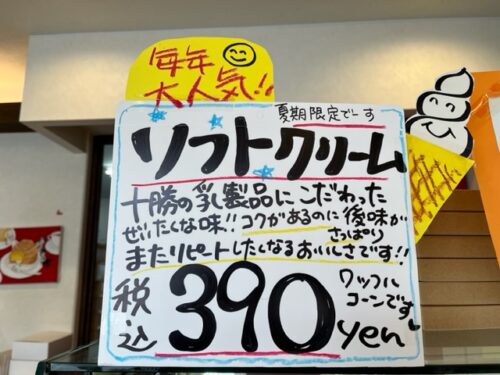 毎年
大人気!!
夏期限定でーす
ソフトクリーム
十勝の乳製品にこだわった
ぜいたくな味!!コクがあるのに後味が
さっぱり
またリピートしたくなるおいしさです!!
税込
390yen
ワッフル
コーンです